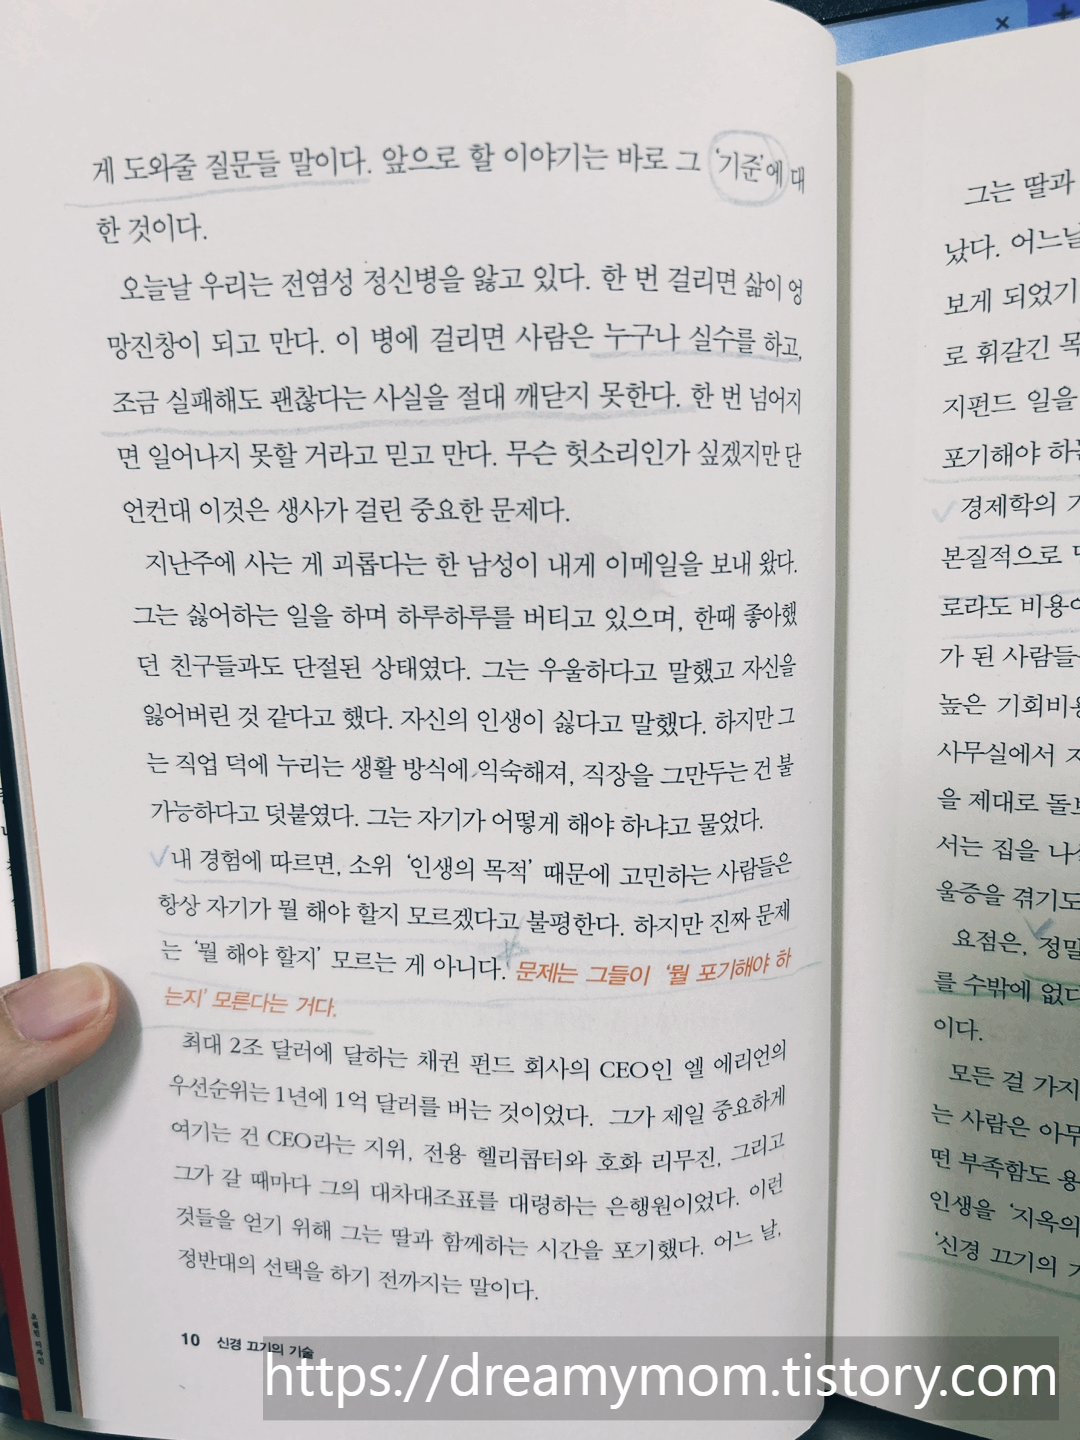 게 도와줄 질문들 말이다. 앞으로 할 이야기는 바로 그 '기준'에 대
한 것이다.
오늘날 우리는 전염성 정신병을 앓고 있다. 한 번 걸리면 삶이 엉
망진창이 되고 만다. 이 병에 걸리면 사람은 누구나 실수를 하고,
조금 실패해도 괜찮다는 사실을 절대 깨닫지 못한다. 한 번 넘어지
면 일어나지 못할 거라고 믿고 만다. 무슨 헛소리인가 싶겠지만 단
언컨대 이것은 생사가 걸린 중요한 문제다.
지난주에 사는 게 괴롭다는 한 남성이 내게 이메일을 보내 왔다.
그는 싫어하는 일을 하며 하루하루를 버티고 있으며, 한때 좋아했
던 친구들과도 단절된 상태였다. 그는 우울하다고 말했고 자신을
잃어버린 것 같다고 했다. 자신의 인생이 싫다고 말했다. 하지만 그
는 직업 덕에 누리는 생활 방식에 익숙해져, 직장을 그만두는 건 불
가능하다고 덧붙였다. 그는 자기가 어떻게 해야 하냐고 물었다.
내 경험에 따르면, 소위 '인생의 목적' 때문에 고민하는 사람들은
항상 자기가 뭘 해야 할지 모르겠다고 불평한다. 하지만 진짜 문제
는 '뭘 해야 할지' 모르는 게 아니다. 문제는 그들이 '뭘 포기해야 하
는지' 모른다는 거다.
최대 2조 달러에 달하는 채권 펀드 회사의 CEO인 엘 에리언의
우선순위는 1년에 1억 달러를 버는 것이었다. 그가 제일 중요하게
여기는 건 CEO라는 지위, 전용 헬리콥터와 호화 리무진, 그리고
그가 갈 때마다 그의 대차대조표를 대령하는 은행원이었다. 이런
것들을 얻기 위해 그는 딸과 함께하는 시간을 포기했다. 어느 날,
정반대의 선택을 하기 전까지는 말이다.
10 신경 끄기의 기술
그는 딸과
났다. 어느날
보게 되었기
로 휘갈긴 목
지펀드 일을
포기해야 하는
경제학의 기
본질적으로
로라도 비용이
가 된 사람들
높은 기회비용
사무실에서 자
을 제대로 돌보
서는 집을 나
울증을 겪기도
요점은, 정말
를 수밖에 없다
이다.
모든 걸 가지
는 사람은 아무
떤 부족함도 용
인생을 '지옥의
'신경 끄기의 기
https://dreamymom.tistory.com